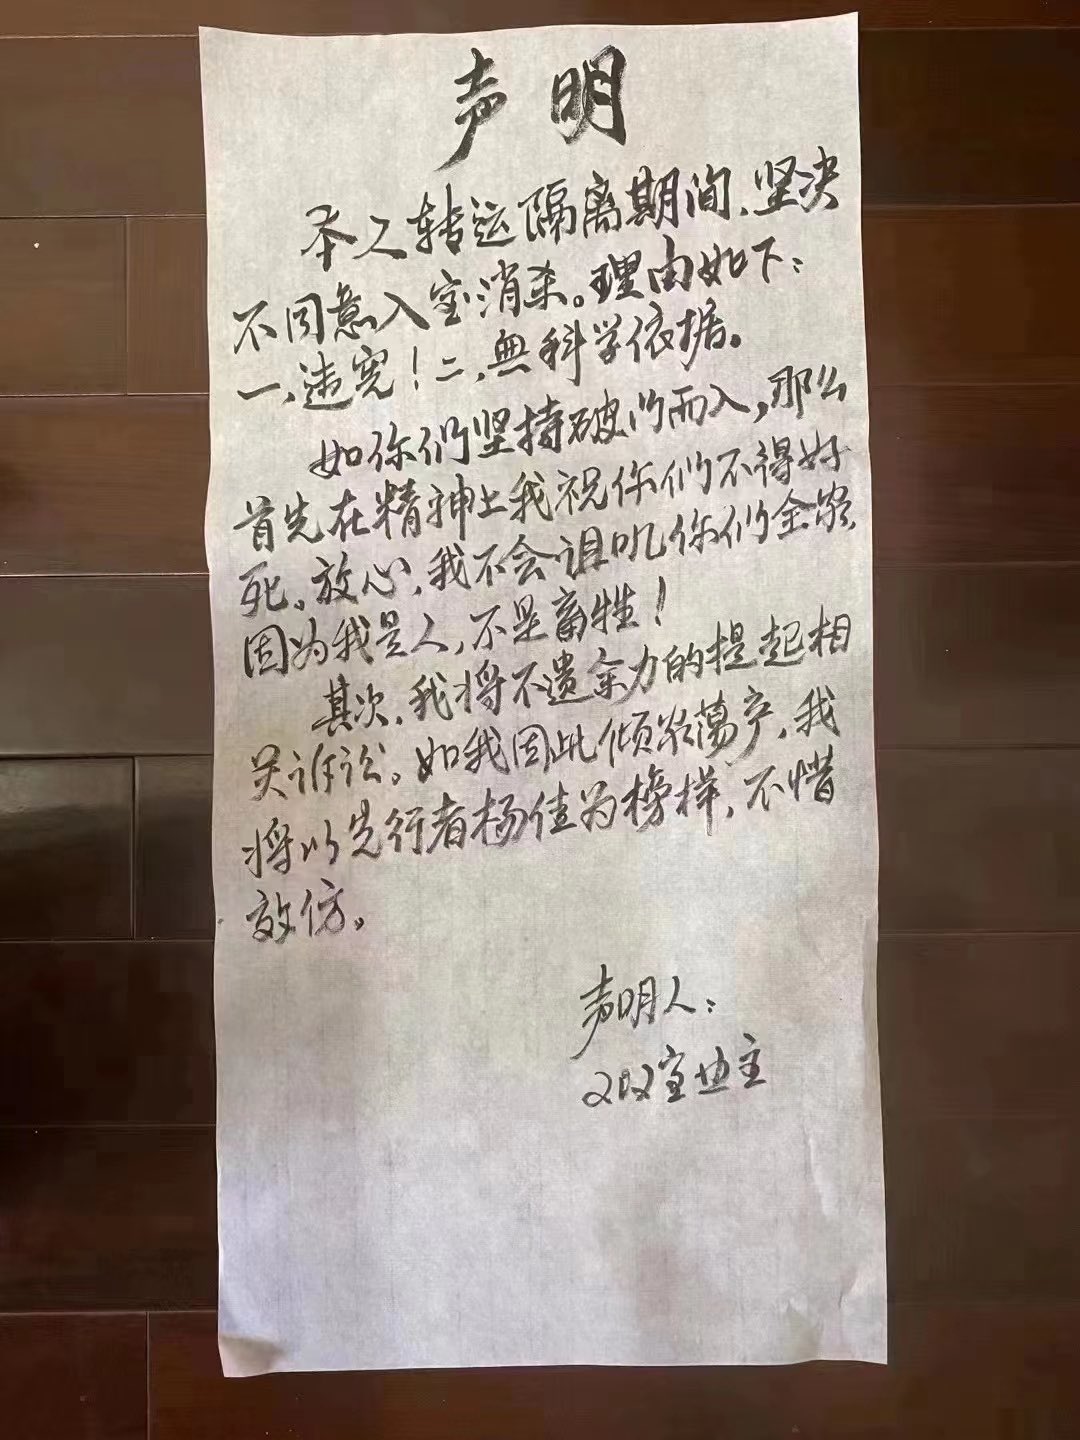 声明
本人转运隔离期间、坚决
不同意入室消杀。理由如下：
一、违宪！二、無科学依据。
如你们坚持破门而入，那么
首先在精神上我祝你们不得好
死。放心，我不会诅咒你们全家，
因为我是人，不是畜牲！
其次，我将不遗余力的提起相
关诉讼。如我因此倾家荡产，我
将以先行者杨佳为榜样，不惜
效仿。
声明人：
202室业主